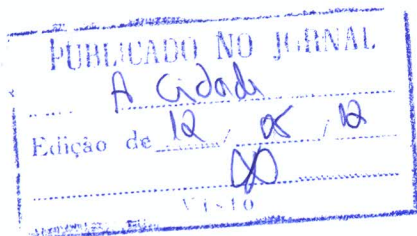 PUBLICADO NO JORNAL
A Cidade
Edição de 12 / 05 / 12
Visto